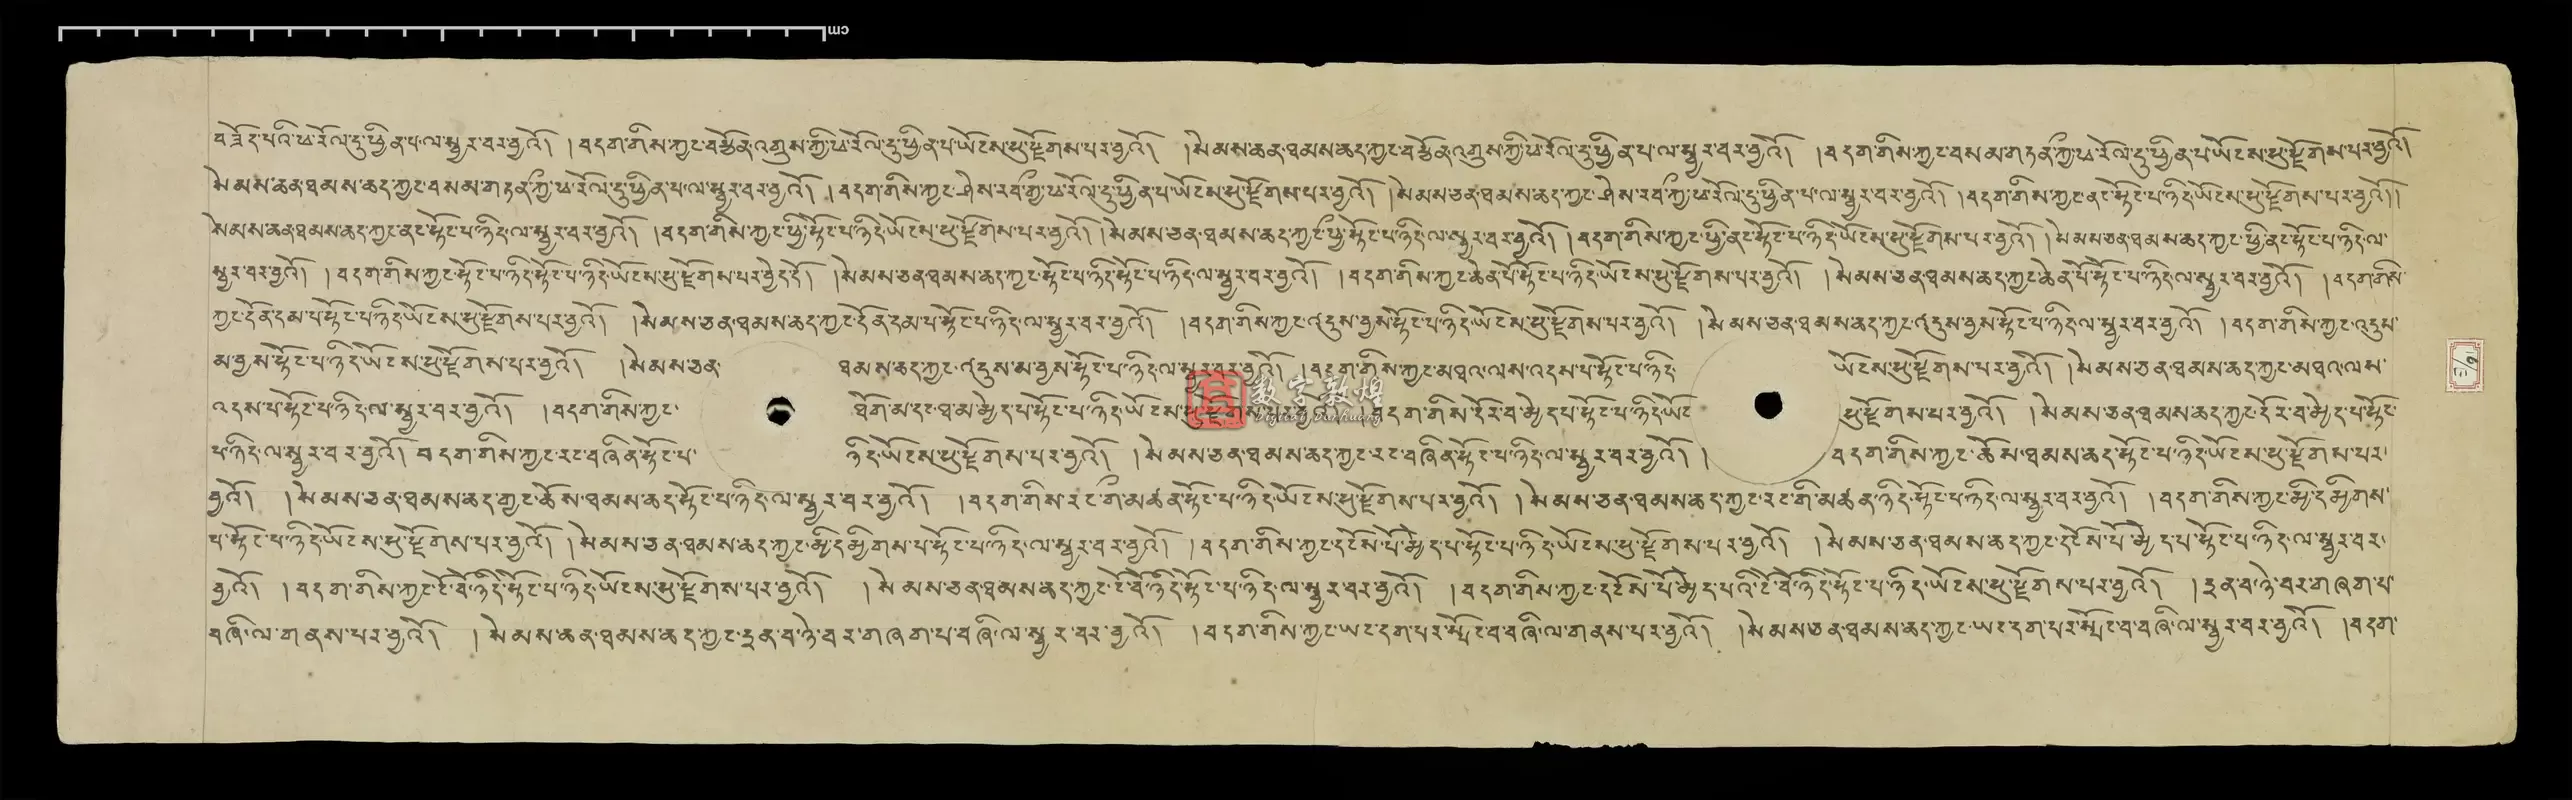 བཟོད་པའི་ཕ་རོལ་དུ་ཕྱིན་པ་ལ་སྦྱར་བར་བྱའོ། །བདག་གིས་ཀྱང་བརྩོན་འགྲུས་ཀྱི་ཕ་རོལ་དུ་ཕྱིན་པ་ཡོངས་སུ་རྫོགས་པར་བྱའོ། །སེམས་ཆན་ཐམས་ཆད་ཀྱང་བརྩོན་འགྲུས་ཀྱི་ཕ་རོལ་དུ་ཕྱིན་པ་ལ་སྦྱར་བར་བྱའོ། །བདག་གིས་ཀྱང་བསམ་གཏན་ཀྱི་ཕ་རོལ་དུ་ཕྱིན་པ་ཡོངས་སུ་རྫོགས་པར་བྱའོ།
སེམས་ཆན་ཐམས་ཆད་ཀྱང་བསམ་གཏན་ཀྱི་ཕ་རོལ་དུ་ཕྱིན་པ་ལ་སྦྱར་བར་བྱའོ། །བདག་གིས་ཀྱང་ཤེས་རབ་ཀྱི་ཕ་རོལ་དུ་ཕྱིན་པ་ཡོངས་སུ་རྫོགས་པར་བྱའོ། །སེམས་ཅན་ཐམས་ཆད་ཀྱང་ཤེས་རབ་ཀྱི་ཕ་རོལ་དུ་ཕྱིན་པ་ལ་སྦྱར་བར་བྱའོ། །བདག་གིས་ཀྱང་ནང་སྟོང་པ་ཉིད་ཡོངས་སུ་རྫོགས་པར་བྱའོ།།
སེམས་ཆན་ཐམས་ཆད་ཀྱང་ནང་སྟོང་པ་ཉིད་ལ་སྦྱར་བར་བྱའོ། །བདག་གིས་ཀྱང་ཕྱི་སྟོང་པ་ཉིད་ཡོངས་སུ་རྫོགས་པར་བྱའོ། །སེམས་ཅན་ཐམས་ཆད་ཀྱང་ཕྱི་སྟོང་པ་ཉིད་ལ་སྦྱར་བར་བྱའོ། །བདག་གིས་ཀྱང་ཕྱི་ནང་སྟོང་པ་ཉིད་ཡོངས་སུ་རྫོགས་པར་བྱའོ། །སེམས་ཅན་ཐམས་ཆད་ཀྱང་ཕྱི་ནང་སྟོང་པ་ཉིད་ལ་
སྦྱར་བར་བྱའོ། །བདག་གིས་ཀྱང་སྟོང་པ་ཉིད་སྟོང་པ་ཉིད་ཡོངས་སུ་རྫོགས་པར་བྱེད་དོ། །སེམས་ཅན་ཐམས་ཆད་ཀྱང་སྟོང་པ་ཉིད་སྟོང་པ་ཉིད་ལ་སྦྱར་བར་བྱའོ། །བདག་གིས་ཀྱང་ཆེན་པོ་སྟོང་པ་ཉིད་ཡོངས་སུ་རྫོགས་པར་བྱའོ། །སེམས་ཅན་ཐམས་ཆད་ཀྱང་ཆེན་པོ་སྟོང་པ་ཉིད་ལ་སྦྱར་བར་བྱའོ། །བདག་གིས་
ཀྱང་དོན་དམ་པ་སྟོང་པ་ཉིད་ཡོངས་སུ་རྫོགས་པར་བྱའོ། །སེམས་ཅན་ཐམས་ཆད་ཀྱང་དོན་དམ་པ་སྟོང་པ་ཉིད་ལ་སྦྱར་བར་བྱའོ། །བདག་གིས་ཀྱང་འདུས་བྱས་སྟོང་པ་ཉིད་ཡོངས་སུ་རྫོགས་པར་བྱའོ། །སེམས་ཅན་ཐམས་ཆད་ཀྱང་འདུས་བྱས་སྟོང་པ་ཉིད་ལ་སྦྱར་བར་བྱའོ། །བདག་གིས་ཀྱང་འདུས་
མ་བྱས་སྟོང་པ་ཉིད་ཡོངས་སུ་རྫོགས་པར་བྱའོ། །སེམས་ཅན་ ཐམས་ཆད་ཀྱང་འདུས་མ་བྱས་སྟོང་པ་ཉིད་ལ་སྦྱར་བར་བྱའོ། །བདག་གིས་ཀྱང་མཐའ་ལས་འདས་པ་སྟོང་པ་ཉིད་ ཡོངས་སུ་རྫོགས་པར་བྱའོ། །སེམས་ཅན་ཐམས་ཆད་ཀྱང་མཐའ་ལས་
འདས་པ་སྟོང་པ་ཉིད་ལ་སྦྱར་བར་བྱའོ། །བདག་གིས་ཀྱང་ ཐོག་མ་དང་ཐ་མ་མྱེད་པ་སྟོང་པ་ཉིད་ཡོངས་སུ་རྫོགས་པར་བྱའོ། །བདག་གིས་དོར་བ་མྱེད་པ་སྟོང་པ་ཉིད་ཡོང་ སུ་རྫོགས་པར་བྱའོ། །སེམས་ཅན་ཐམས་ཆད་ཀྱང་དོར་བ་མྱེད་པ་སྟོང་
པ་ཉིད་ལ་སྦྱར་བར་བྱའོ། བདག་གིས་ཀྱང་རང་བཞིན་སྟོང་པ་ ཉིད་ཡོངས་སུ་རྫོགས་པར་བྱའོ། །སེམས་ཅན་ཐམས་ཆད་ཀྱང་རང་བཞིན་སྟོང་པ་ཉིད་ལ་སྦྱར་བར་བྱའོ། ། བདག་གིས་ཀྱང་ཆོས་ཐམས་ཆད་སྟོང་པ་ཉིད་ཡོངས་སུ་རྫོགས་པར་
བྱའོ། །སེམས་ཅན་ཐམས་ཆད་ཀྱང་ཆོས་ཐམས་ཆད་སྟོང་པ་ཉིད་ལ་སྦྱར་བར་བྱའོ། །བདག་གིས་རང་གི་མཚན་སྟོང་པ་ཉིད་ཡོངས་སུ་རྫོགས་པར་བྱའོ། །སེམས་ཅན་ཐམས་ཆད་ཀྱང་རང་གི་མཚན་ཉིད་སྟོང་པ་ཉིད་ལ་སྦྱར་བར་བྱའོ། །བདག་གིས་ཀྱང་མྱི་དམྱིགས་
པ་སྟོང་པ་ཉིད་ཡོངས་སུ་རྫོགས་པར་བྱའོ། །སེམས་ཅན་ཐམས་ཆད་ཀྱང་མྱི་དམྱིགས་པ་སྟོང་པ་ཉིད་ལ་སྦྱར་བར་བྱའོ། །བདག་གིས་ཀྱང་དངོས་པོ་མྱེད་པ་སྟོང་པ་ཉིད་ཡོངས་སུ་རྫོགས་པར་བྱའོ། །སེམས་ཅན་ཐམས་ཆད་ཀྱང་དངོས་པོ་མྱེད་པ་སྟོང་པ་ཉིད་ལ་སྦྱར་བར་
བྱའོ། །བདག་གིས་ཀྱང་ངོ་བོ་ཉིད་སྟོང་པ་ཉིད་ཡོངས་སུ་རྫོགས་པར་བྱའོ། །སེམས་ཅན་ཐམས་ཆད་ཀྱང་ངོ་བོ་ཉིད་སྟོང་པ་ཉིད་ལ་སྦྱར་བར་བྱའོ། །བདག་གིས་ཀྱང་དངོས་པོ་མྱེད་པའི་ངོ་བོ་ཉིད་སྟོང་པ་ཉིད་ཡོངས་སུ་རྫོགས་པར་བྱའོ། །དྲན་བ་ཉེ་བར་གཞག་པ་
བཞི་ལ་གནས་པར་བྱའོ། །སེམས་ཆན་ཐམས་ཆད་ཀྱང་དྲན་བ་ཉེ་བར་གཞག་པ་བཞི་ལ་སྦྱར་བར་བྱའོ། །བདག་གིས་ཀྱང་ཡང་དག་པར་སྤོང་བ་བཞི་ལ་གནས་པར་བྱའོ། །སེམས་ཅན་ཐམས་ཆད་ཀྱང་ཡང་དག་པར་སྤོང་བ་བཞི་ལ་སྦྱར་བར་བྱའོ། །བདག་
cm
数字敦煌
Digital Dunhuang